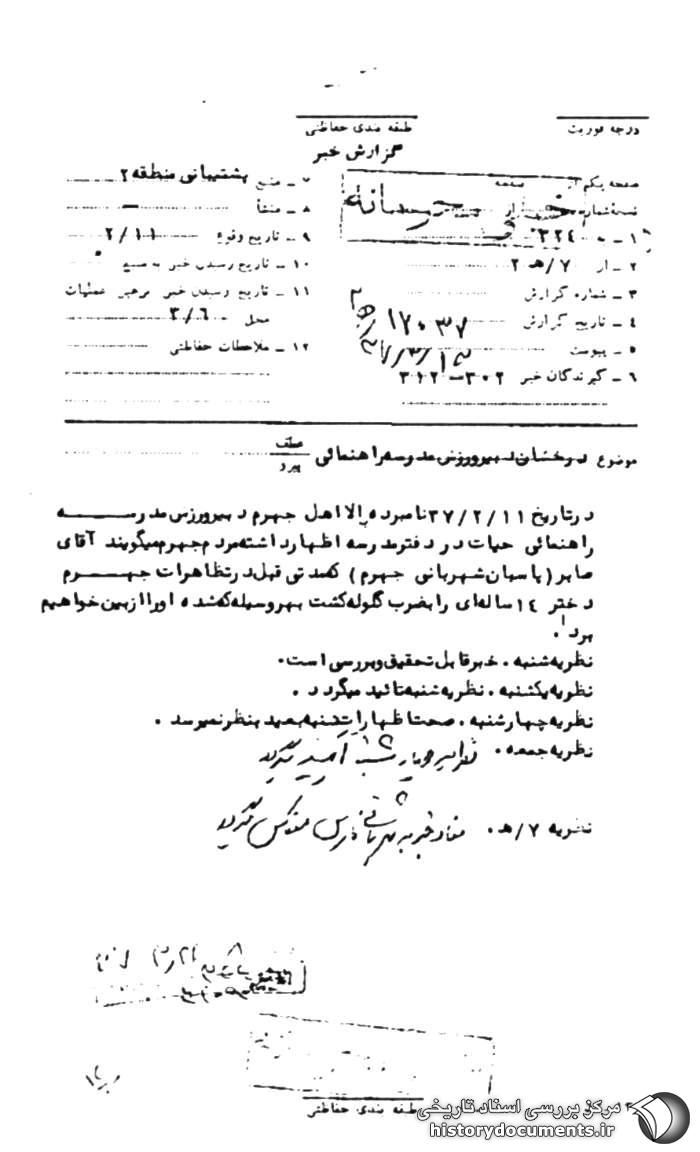 درجه فوریت
طبقه بندی حفاظتی
گزارش خبر
صفحه یکم از صفحه
نسخه شماره از
۱ ـ به ۳۲۴
۲ ـ از ۷/هـ ۲
۳ ـ شماره گزارش ۱۷۰۳۷
۴ ـ تاریخ گزارش
۵ ـ پیوست
۶ ـ گیرندگان خبر ۳۰۲-۳۱۲
۷ ـ منبع پشتیبانی منطقه ۲
۸ ـ منشأ
۹ ـ تاریخ وقوع ۲/۱۱
۱۰ ـ تاریخ رسیدن خبر به منبع
۱۱ ـ تاریخ رسیدن خبر برهبر عملیات
محل ۳/۶
۱۲ ـ ملاحظات حفاظتی
خیلی محرمانه
موضوع درخشان دبیر ورزش مدرسه راهنمائی
عطف
پیرو
در تاریخ ۳۷/۲/۱۱ نامبرده بالا اهل جهرم دبیر ورزش مدرسه
راهنمائی حیات در دفتر مدرسه اظهار داشته مردم جهرم میگویند آقای
صابر (پاسبان شهربانی جهرم) که مدتی قبل در تظاهرات جهرم
دختر ۱۴ ساله‌ای را بضرب گلوله کشت بهر وسیله که شده او را از بین خواهیم
برد.
نظریه شنبه . خبر قابل تحقیق و بررسی است.
نظریه یکشنبه . نظریه شنبه تائید میگردد .
نظریه چهارشنبه . صحت اظهارات شنبه بعید بنظر نمیرسد .
نظریه جمعه .
نظریه ۷/هـ . مفاد خبر به شهربانی فارس منعکس گردید
طبقه بندی حفاظتی
مرکز بررسی اسناد تاریخی
historydocuments.ir